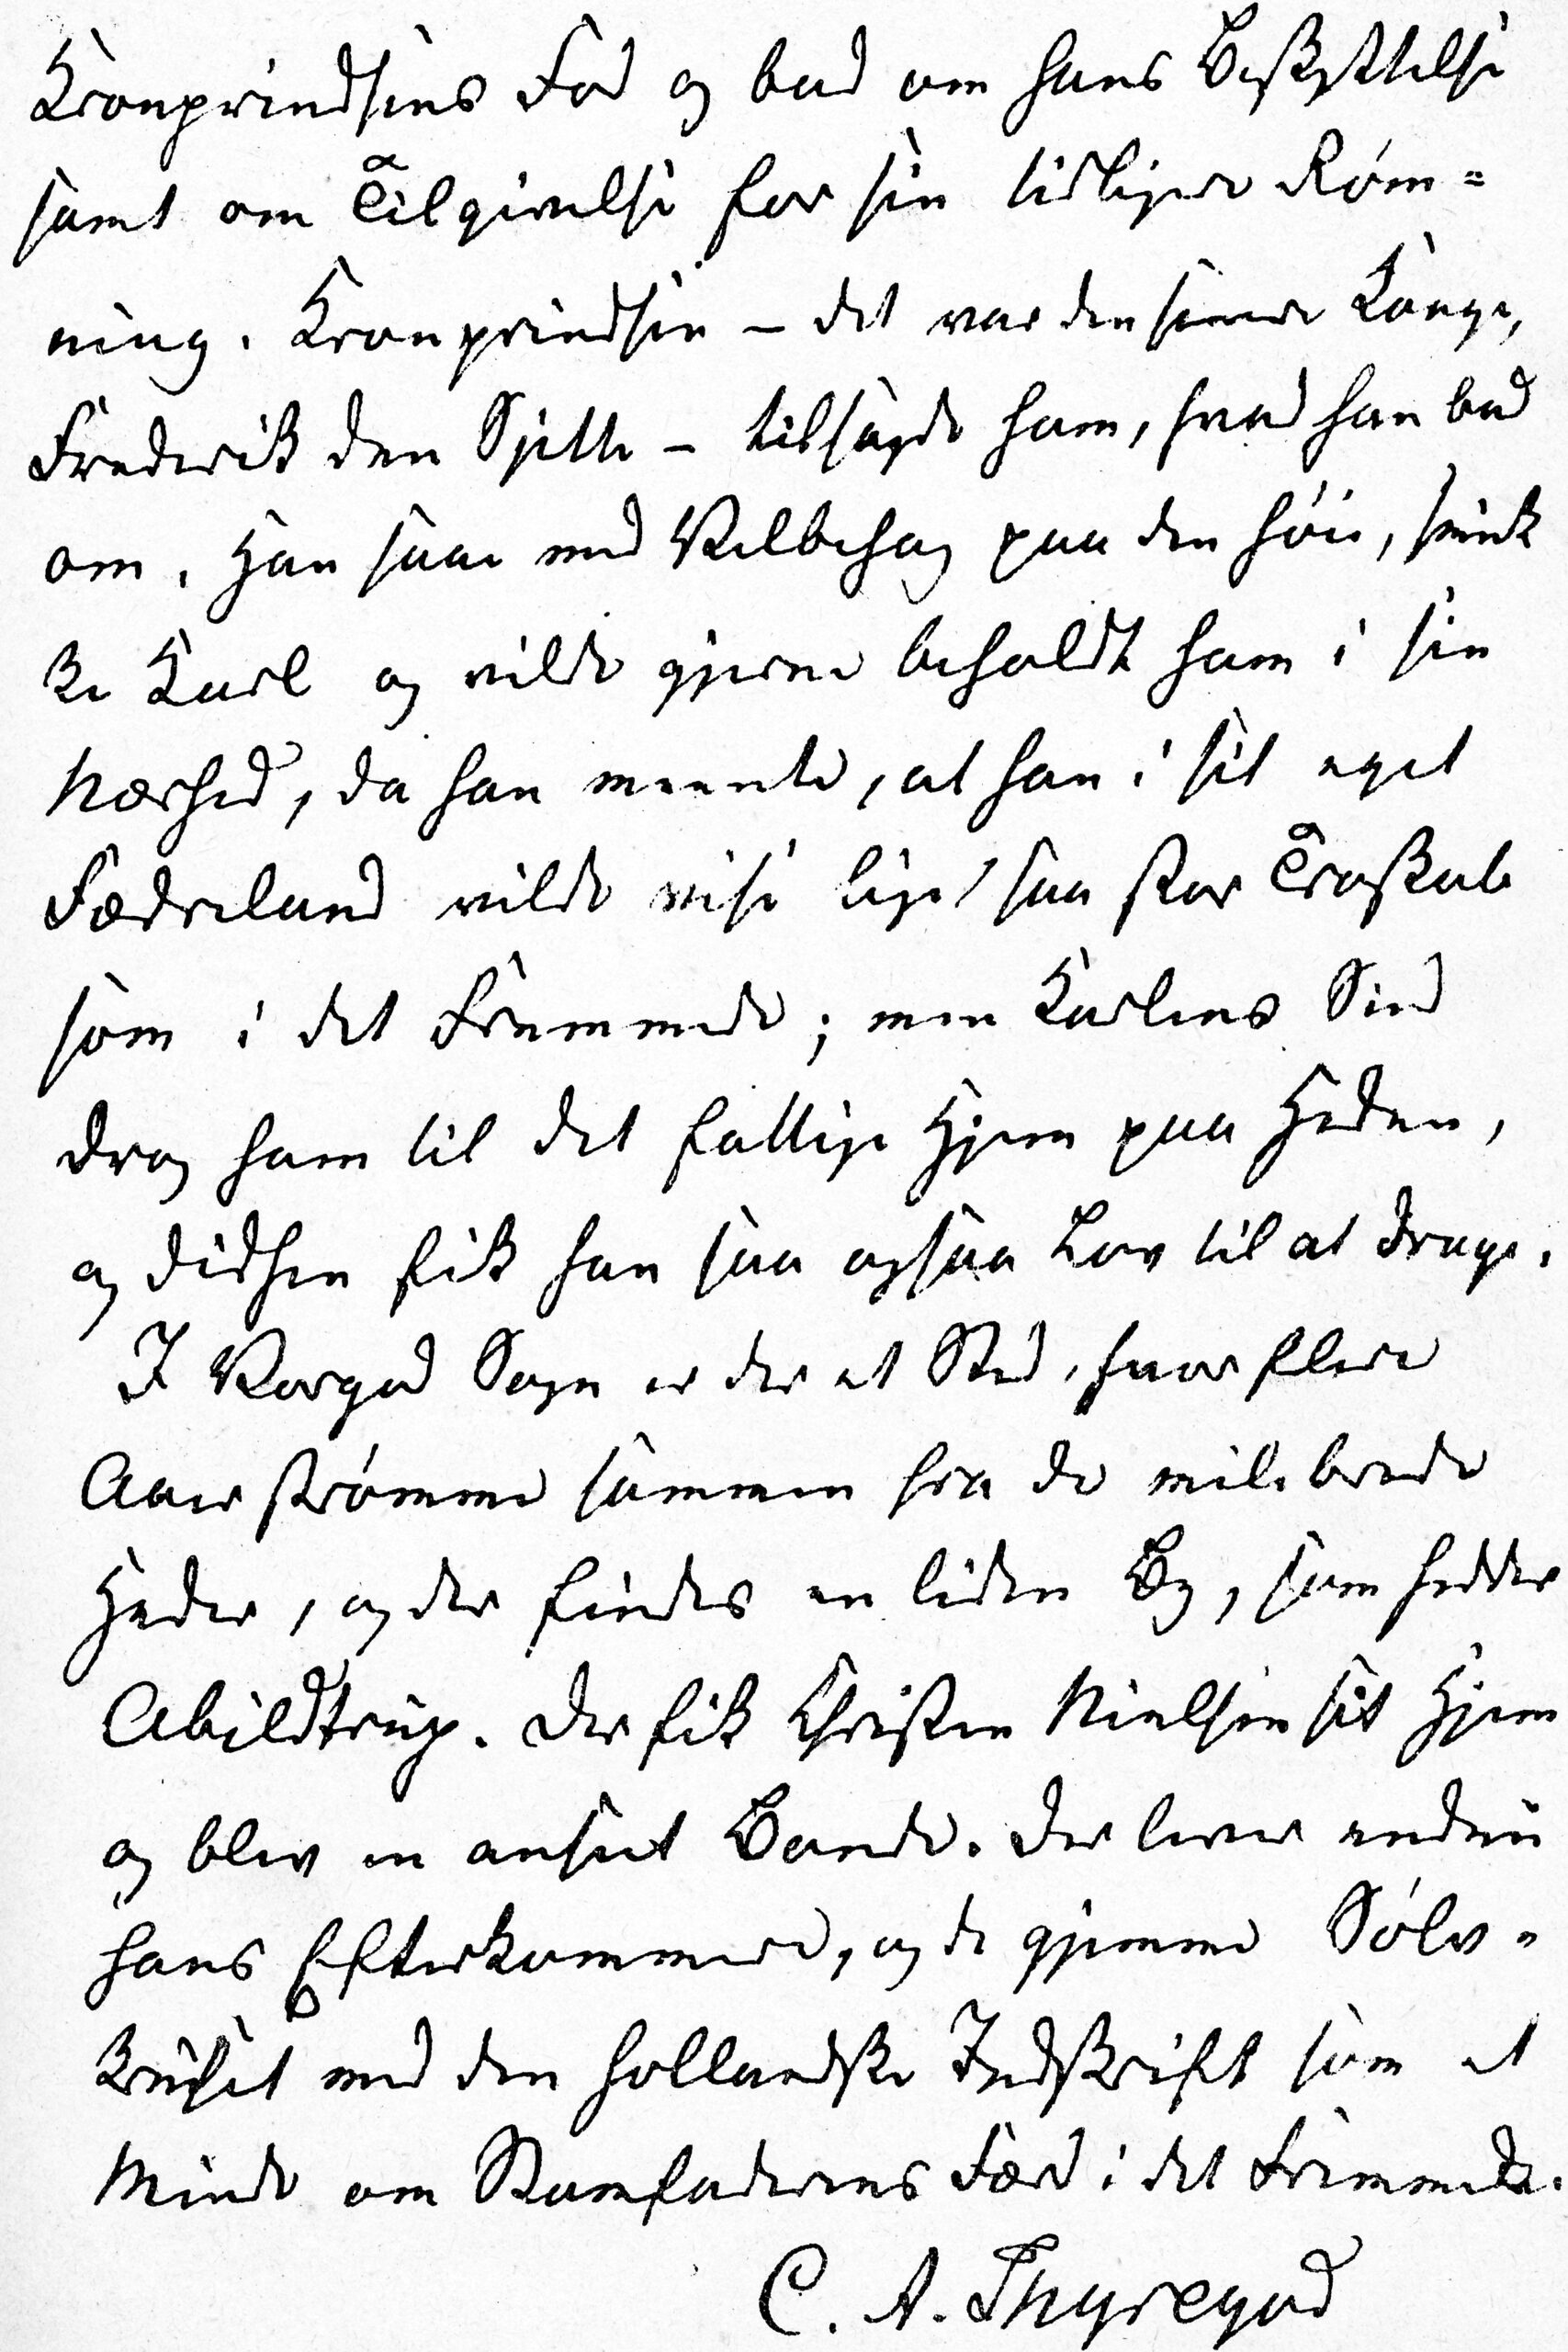 Kronprindsens Fod og bad om hans Beskyttelse
samt om Tilgivelse for sin tidligere Røm=
ning. Kronprindsen – det var den senere Konge,
Frederik den Sjette – tilsagde ham, hvad han bad
om. Han saae med Velbehag paa den høie, smuk
ke Karl og vilde gjerne beholdt ham i sin
Nærhed, da han meente, at han i sit eget
Fædreland vilde vise lige saa stor Troskab
som i det Fremmede; men Karlens Sind
drog ham til det fattige Hjem paa Heden,
og didhen fik han saa ogsaa Lov til at drage.
I Vorgod Sogn er der et Sted, hvor flere
Aaer strømme sammen fra de milebrede
Heder, og der findes en liden By, som hedder
Abildtrup. Der fik Christen Nielsen sit Hjem
og blev en anseet Bonde. Der lever endnu
hans Efterkommere, og de gjemme Sølv=
kruset med den hollandske Indskrift som et
Minde om Stamfaderens Færd i det Fremmede.
C. A. Thyregod